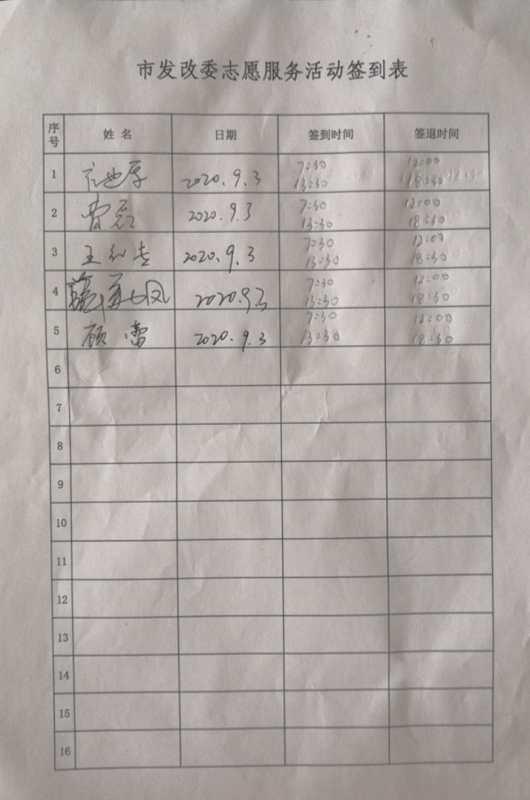 市发改委志愿服务活动签到表
序号 姓名 日期 签到时间 签退时间
1 2020.9.3 7:30 12:00
13:30 18:30
2 2020.9.3 7:30 12:00
13:30 18:30
3 2020.9.3 7:30 12:00
13:30 18:30
4 2020.9.3 7:30 12:00
13:30 18:30
5 顾蕾 2020.9.3 7:30 12:00
13:30 18:30
6
7
8
9
10
11
12
13
14
15
16